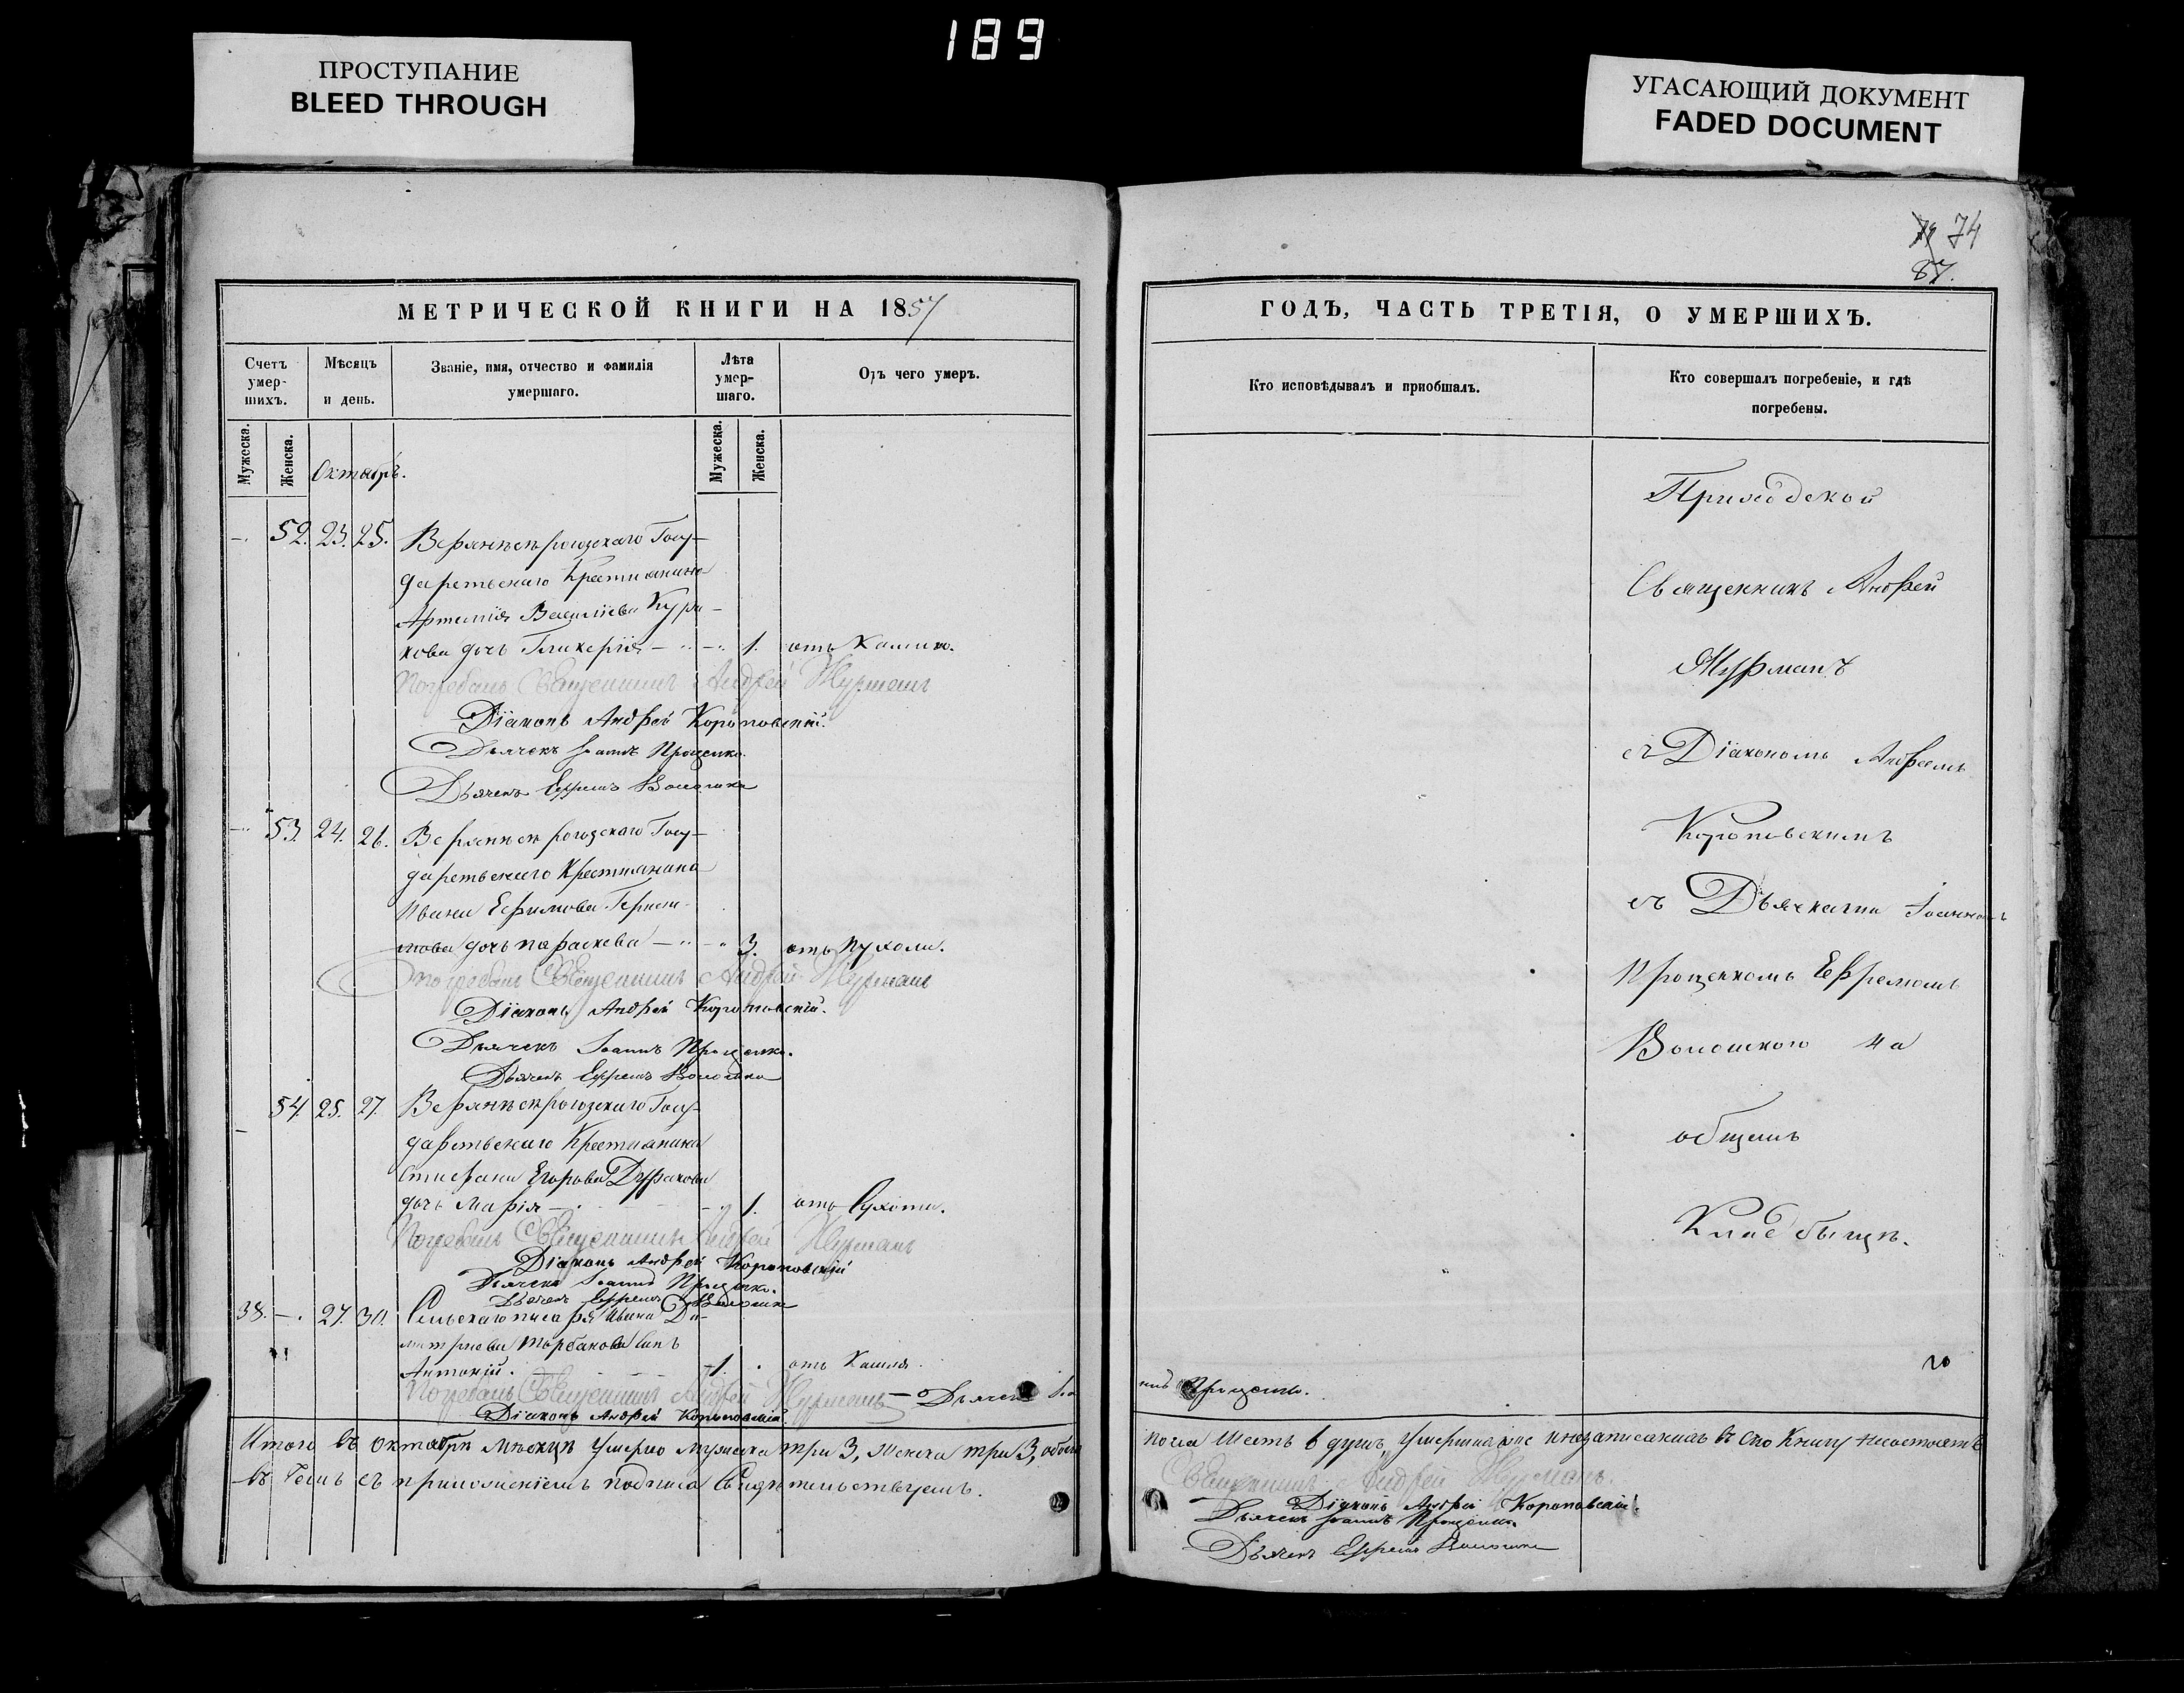 189
ПРОСТУПАНИЕ
BLEED THROUGH
УГАСАЮЩИЙ ДОКУМЕНТ
FADED DOCUMENT
74
87.
МЕТРИЧЕСКОЙ КНИГИ НА 1857
Счетъ умер-шихъ.
Мѣсяцъ и день.
Званіе, имя, отчество и фамилія умершаго.
Лѣта умер-шаго.
Отъ чего умеръ.
Мужеска.
Женска.
Октябрь.
Мужеска.
Женска.
52. 23. 25. Госу-
дарственнаго Крестьянина
Артемія Васильева
кова дочь Гликерія 1. отъ Кашля.
Погребалъ Священникъ Андрей Журманъ
Діаконъ Андрей Короповскій.
Дьячекъ Іоаннъ Проценко.
Дьячекъ Ефремъ Волошко
53. 24. 26. Госу-
дарственнаго Крестьянина
Ивана Ефимова
дочь Параскева 3. отъ
погребалъ Священникъ Андрей Журманъ
Діаконъ Андрей Короповскій.
Дьячекъ Іоаннъ Проценко.
Дьячекъ Ефремъ Волошко
54. 25. 27. Госу-
дарственнаго Крестьянина
Стефана Егорова
дочь Марія 1. отъ Сухоти.
Погребалъ Священникъ Андрей Журманъ
Діаконъ Андрей Короповскій
Дьячекъ Іоаннъ Проценко.
Дьячекъ Ефремъ Волошко
38. 27. 30. Сельскаго писаря Ивана Ди-
митріева сынъ
Антоній. 1. отъ Кашля.
Погребалъ Священникъ Андрей Журманъ Дьячекъ Іоа
Діаконъ Андрей Короповскій.
Итого въ октябрѣ мѣсяцѣ умерло мужеска три 3, женска три 3, обоего
въ чемъ съ приложеніемъ подписа Свидѣтельствуемъ.
ГОДЪ, ЧАСТЬ ТРЕТІЯ, О УМЕРШИХЪ.
Кто исповѣдывалъ и пріобщалъ.
Кто совершалъ погребеніе, и гдѣ погребены.
Приходской
Священникъ Андрей
Журманъ
съ Діакономъ Андреемъ
Короповскимъ
съ Дьячками Іоанномъ
Проценкомъ Ефремомъ
Волошкою на
общемъ
Кладбыщѣ.
нъ Проценко.
пола шесть 6 душъ, въ сію Книгу
Священникъ Андрей Журманъ.
Діаконъ Андрей Короповскій.
Дьячекъ Іоаннъ Проценко.
Дьячекъ Ефремъ Волошко